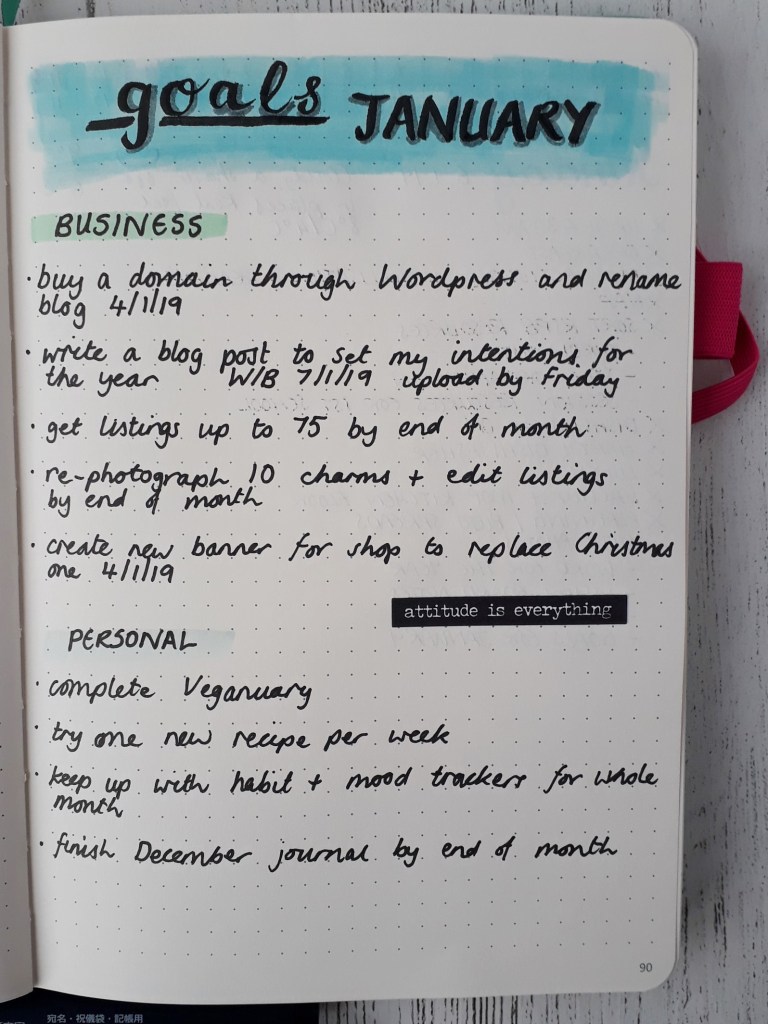 goals JANUARY
BUSINESS
· buy a domain through Wordpress and rename
blog 4/1/19
· write a blog post to set my intentions for
the year W/B 7/1/19 upload by Friday
· get listings up to 75 by end of month
· re-photograph 10 charms + edit listings
by end of month
· create new banner for shop to replace Christmas
one 4/1/19
attitude is everything
PERSONAL
· complete Veganuary
· try one new recipe per week
· keep up with habit + mood trackers for whole
month
· finish December journal by end of month
90
宛名・祝儀袋・記帳用